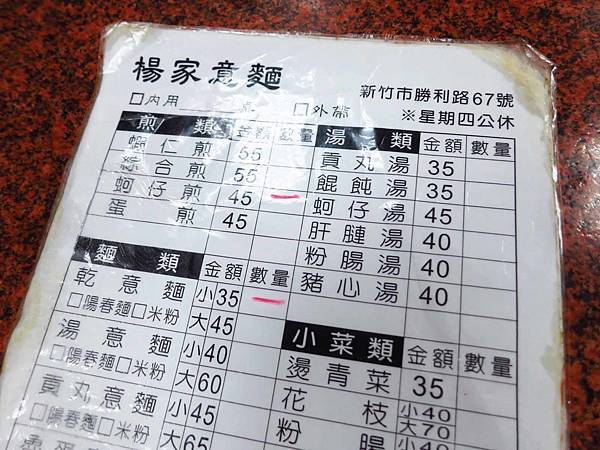 楊家意麵
新竹市勝利路67號
□內用 桌 □外帶 ※星期四公休
煎類 金額 數量
蝦仁煎 55
綜合煎 55
蚵仔煎 45 一
蛋煎 45
麵類 金額 數量
乾意麵 小35 一
□陽春麵□米粉 大45
湯意麵 小40
□陽春麵□米粉 大60
貢丸意麵 小45
□陽春麵□米粉 大65
湯類 金額 數量
貢丸湯 35
餛飩湯 35
蚵仔湯 45
肝膁湯 40
粉腸湯 40
豬心湯 40
小菜類 金額 數量
燙青菜 35
花枝 小40 大70
粉腸 小40